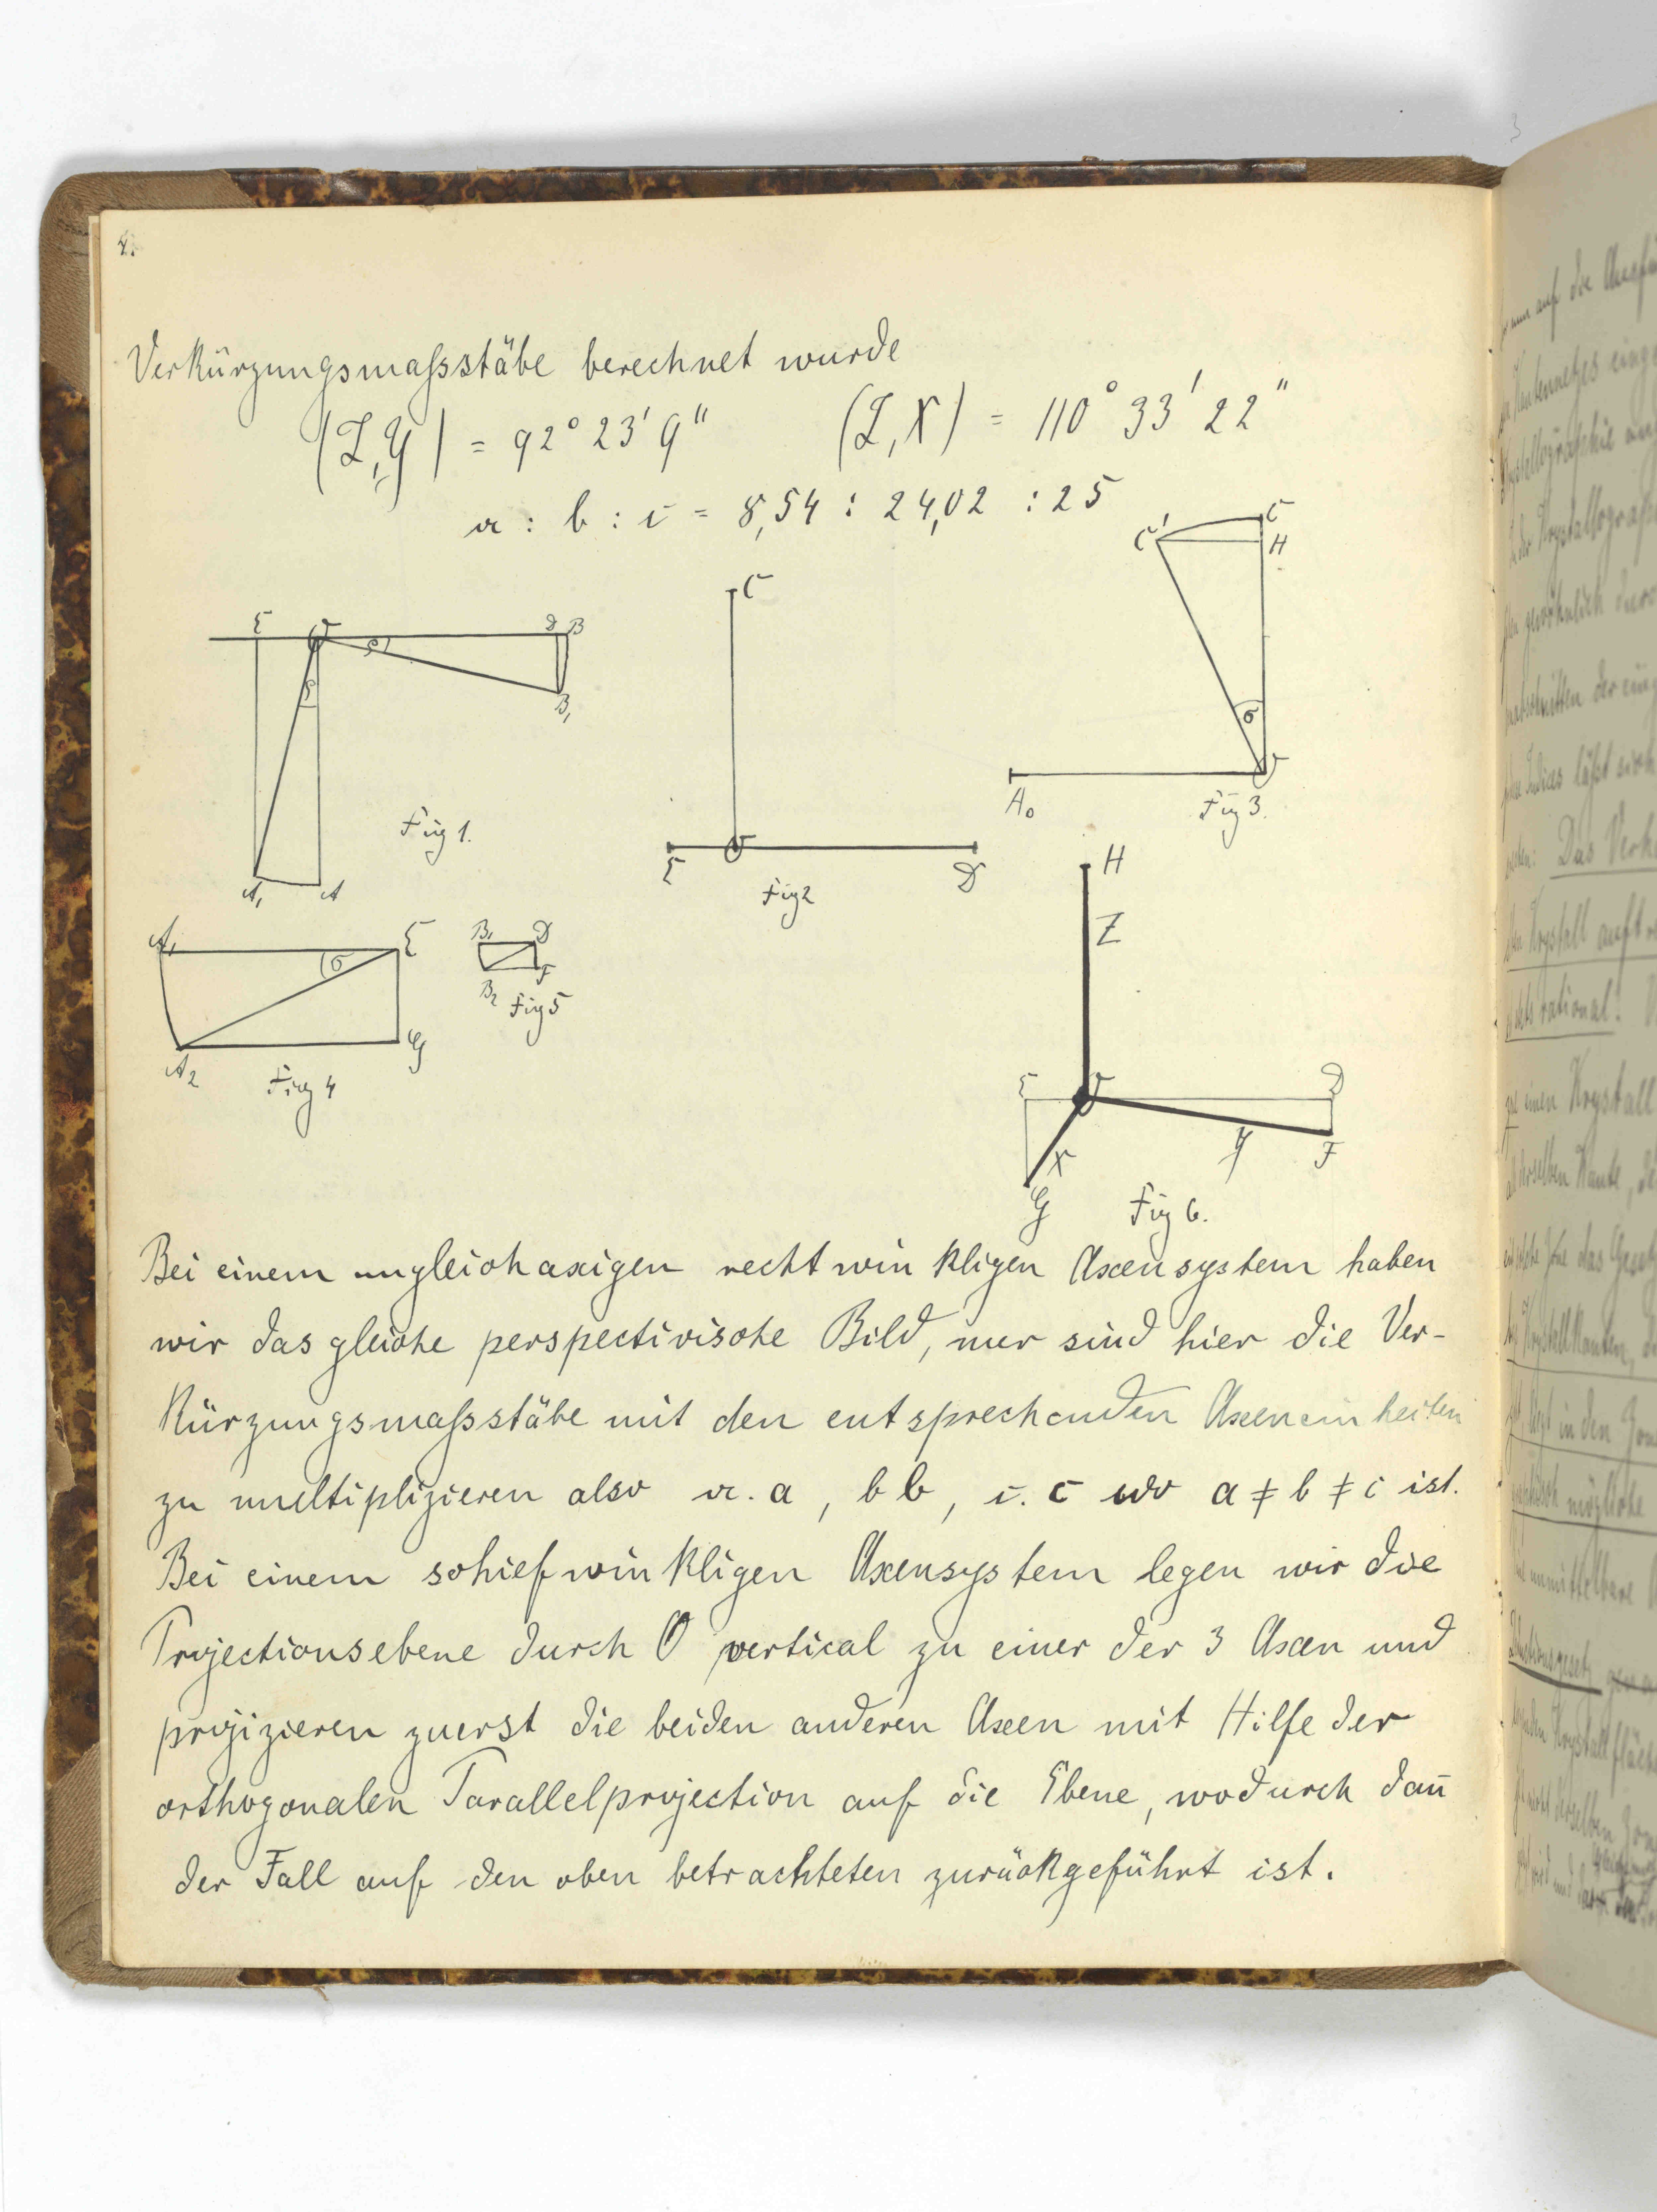 4.
Verkürzungsmaſsstäbe berechnet wurde
(Z,Y) = 92° 23' 9" (Z,X) = 110° 33' 22"
a : b : c = 8,54 : 24,02 : 25
C' C
H
σ
A₀ O
Fig 3.
E O D B
ρ
ρ
B₁
A₁ A
Fig 1.
C
E O D
Fig 2
A₁ E
σ
A₂ G
Fig 4
B₁ D
B₂ F
Fig 5
H
Z
E O D
X Y F
G
Fig 6.
Bei einem ungleichaxigen rechtwinkligen Axensystem haben
wir das gleiche perspectivische Bild, nur sind hier die Ver-
kürzungsmaſsstäbe mit den entsprechenden Axeneinheiten
zu multiplizieren also a. a, b b, c. c wo a ≠ b ≠ c ist.
Bei einem schiefwinkligen Axensystem legen wir die
Projectionsebene durch O vertical zu einer der 3 Axen und
projizieren zuerst die beiden anderen Axen mit Hilfe der
orthogonalen Parallelprojection auf die Ebene, wodurch dan̄
der Fall auf den oben betrachteten zurückgeführt ist.